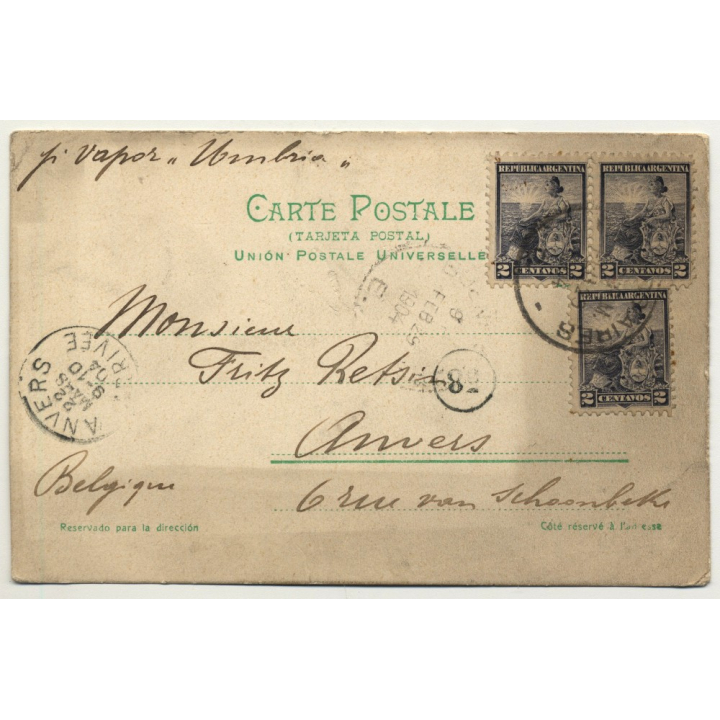 p/ vapor „Umbria„
REPUBLICA ARGENTINA
2 CENTAVOS 2
REPUBLICA ARGENTINA
2 CENTAVOS 2
REPUBLICA ARGENTINA
2 CENTAVOS 2
CARTE POSTALE
(TARJETA POSTAL)
UNIÓN POSTALE UNIVERSELLE
FEB 29
1904
AIRES
Monsieur
Fritz
Anvers
Belgique
6 rue van Schoonbeke
ANVERS
22 MARS
9-10
04
Reservado para la dirección
Côté réservé à l'adresse